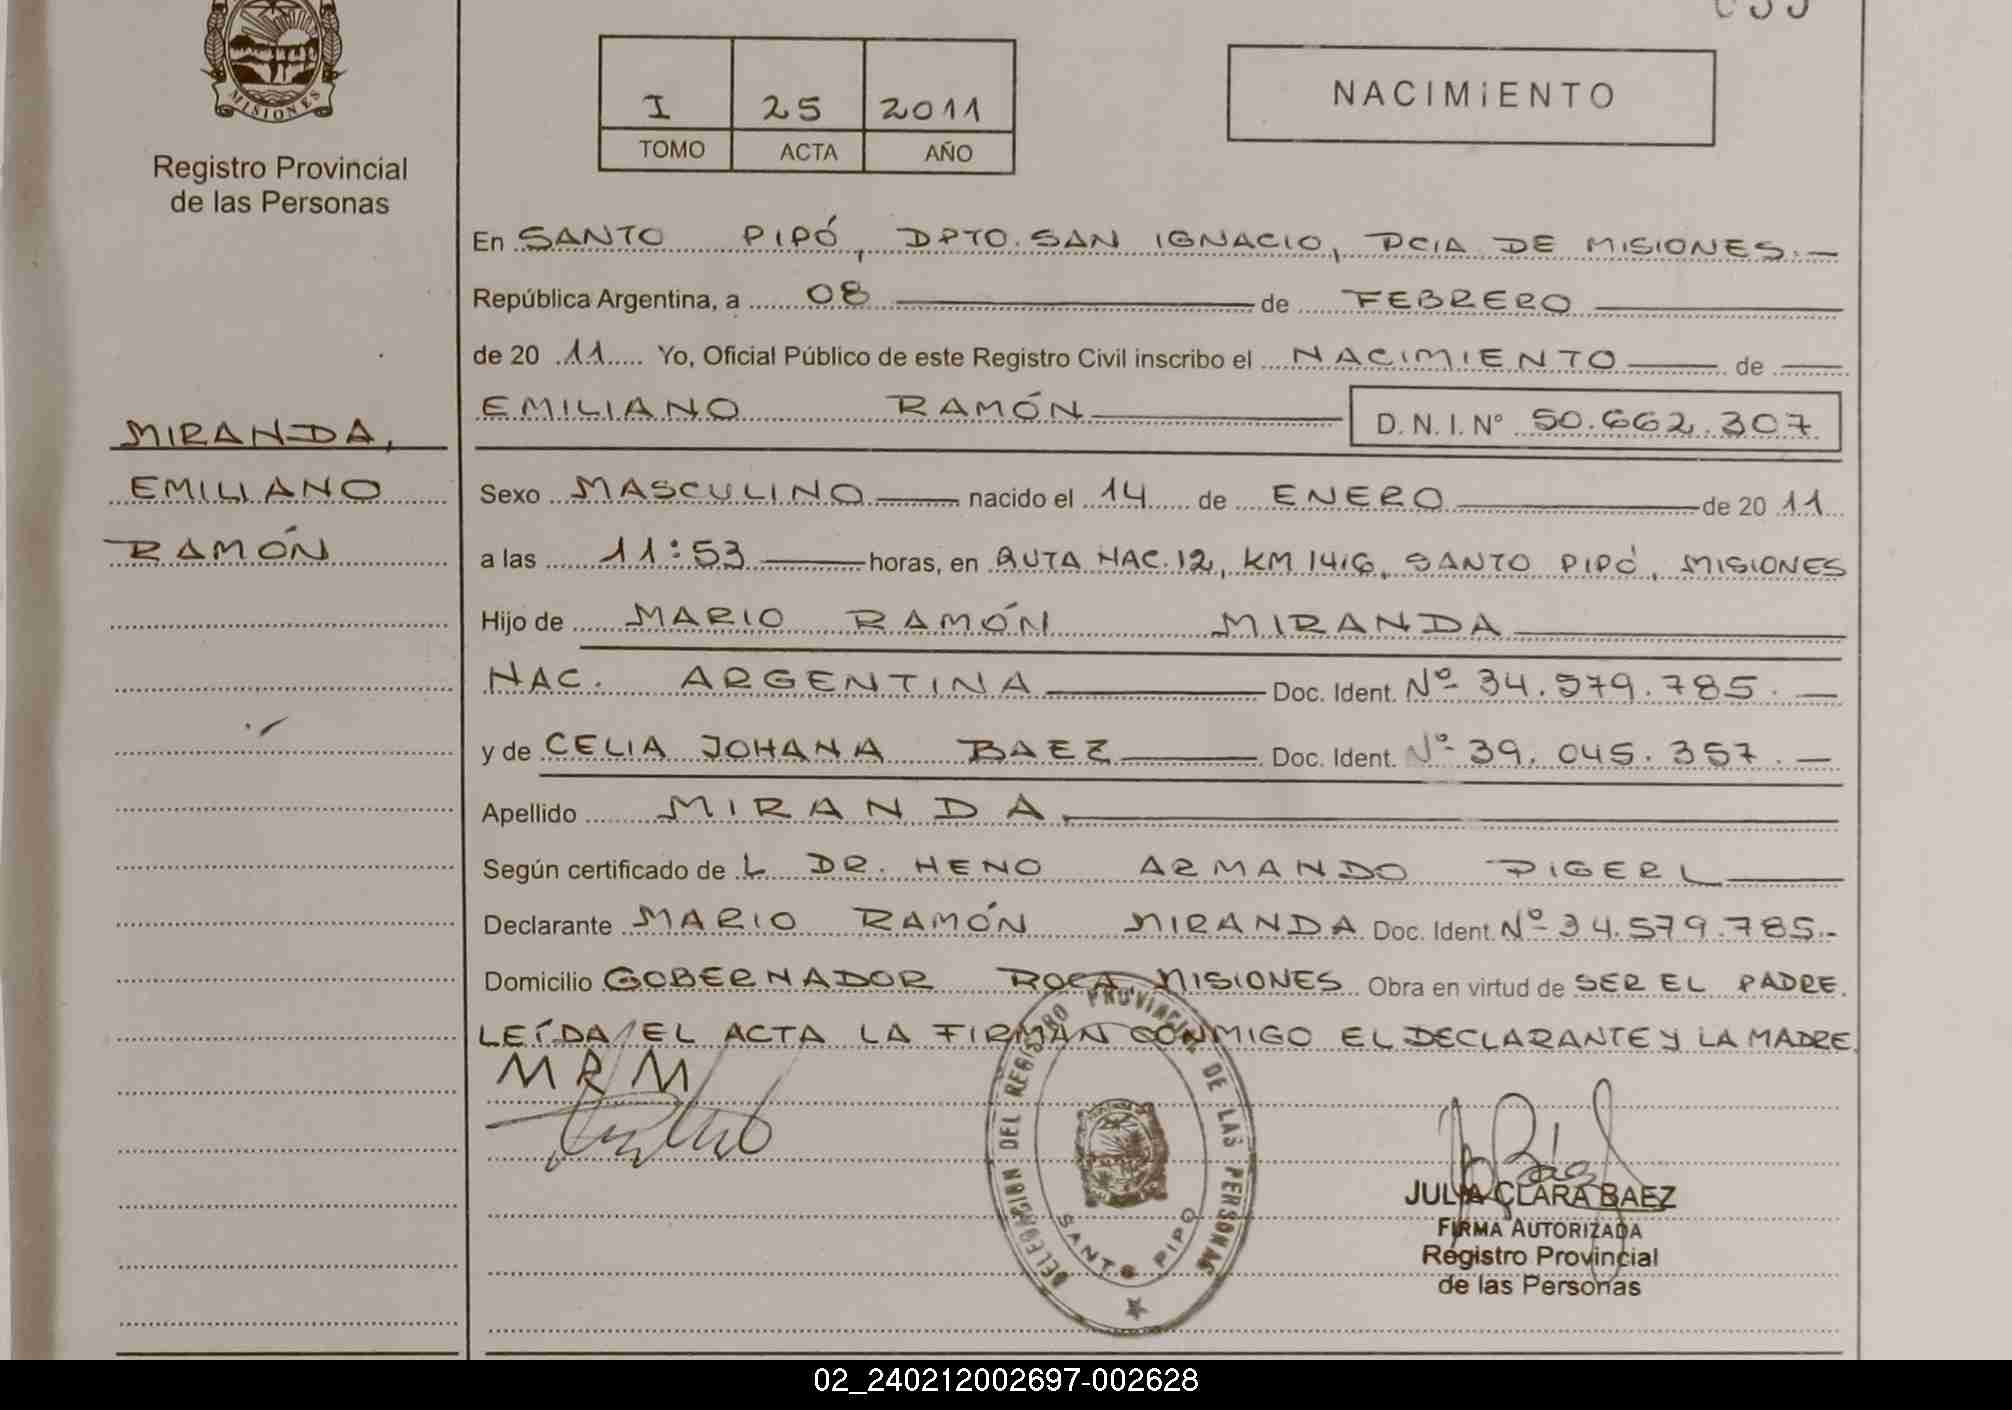 MISIONES
Registro Provincial
de las Personas
I 25 2011
TOMO ACTA AÑO
NACIMiENTO
MIRANDA,
EMILIANO
RAMÓN
En SANTO PIPÓ, DPTO. SAN IGNACIO, PCIA DE MISIONES.-
República Argentina, a 08 de FEBRERO
de 20 11 Yo, Oficial Público de este Registro Civil inscribo el NACIMIENTO de
EMILIANO RAMÓN D. N. I. Nº 50.662.307
Sexo MASCULINO nacido el 14 de ENERO de 20 11
a las 11:53 horas, en RUTA NAC. 12, KM 1416, SANTO PIPÓ, MISIONES
Hijo de MARIO RAMÓN MIRANDA
NAC. ARGENTINA Doc. Ident. Nº 34.579.785.-
y de CELIA JOHANA BAEZ Doc. Ident. Nº 39.045.357.-
Apellido MIRANDA.
Según certificado de L DR. HENO ARMANDO PIGERL
Declarante MARIO RAMÓN MIRANDA Doc. Ident. Nº 34.579.785.-
Domicilio GOBERNADOR ROCA MISIONES Obra en virtud de SER EL PADRE.
LEÍDA EL ACTA LA FIRMAN CONMIGO EL DECLARANTE Y LA MADRE.
MRM
DELEGACIÓN DEL REGISTRO PROVINCIAL DE LAS PERSONAS
SANTO PIPO
JULIA CLARA BAEZ
FIRMA AUTORIZADA
Registro Provincial
de las Personas
02_240212002697-002628